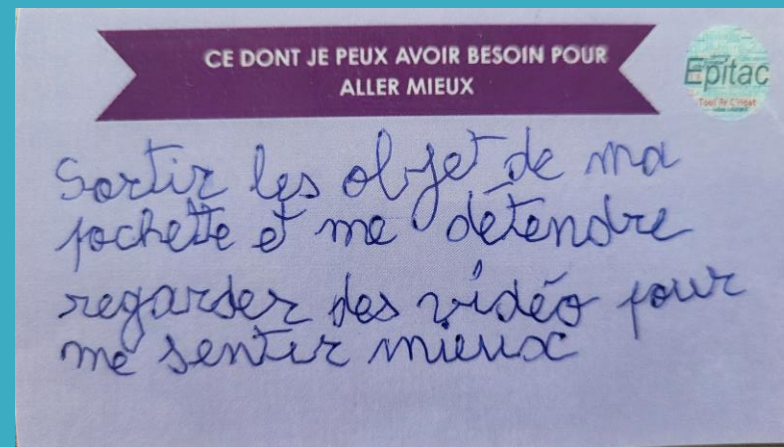 CE DONT JE PEUX AVOIR BESOIN POUR
ALLER MIEUX
Epitac
Sortir les objet de ma
pochette et me détendre
regarder des vidéo pour
me sentir mieux